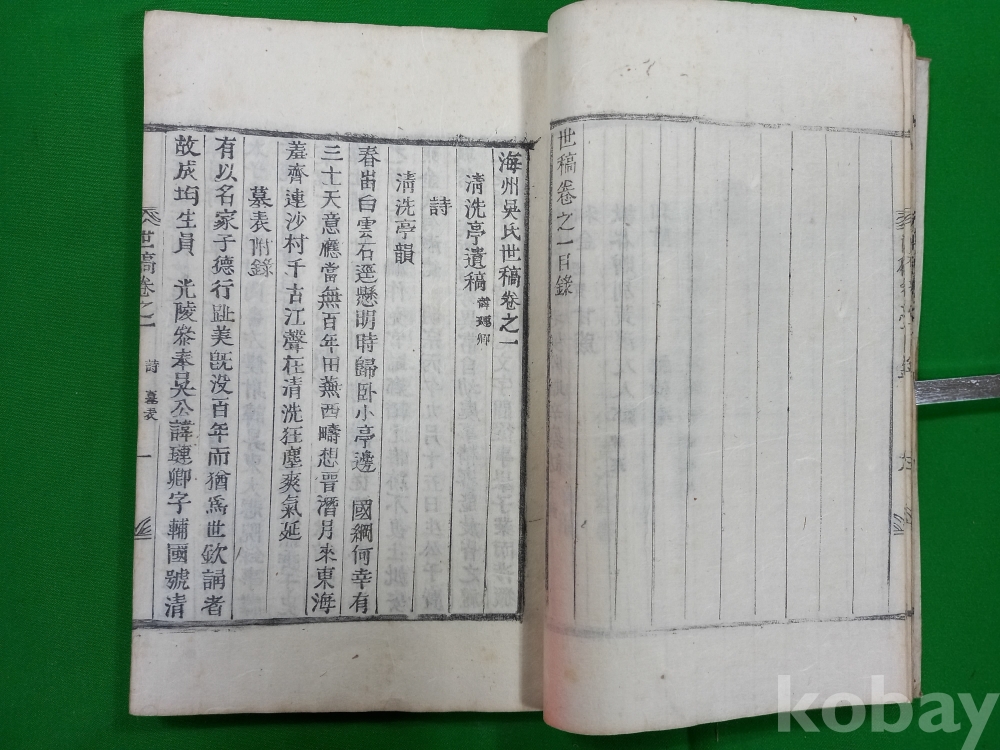 世稿卷之一目錄
海州吳氏世稿卷之一
清洗亭遺稿 諱璉卿
詩
清洗亭韻
春留白雲石逕懸明時歸卧小亭邊 國綱何幸有
三士天意應當無百年田蕪西疇想晉潛月來東海
羞齊連沙村千古江聲在清洗狂塵爽氣延
墓表附錄
有以名家子德行趾美旣没百年而猶爲世欽誦者
故成均生員 光陵參奉吳公諱璉卿字輔國號清
世稿卷之一 詩 墓表 一
kobay